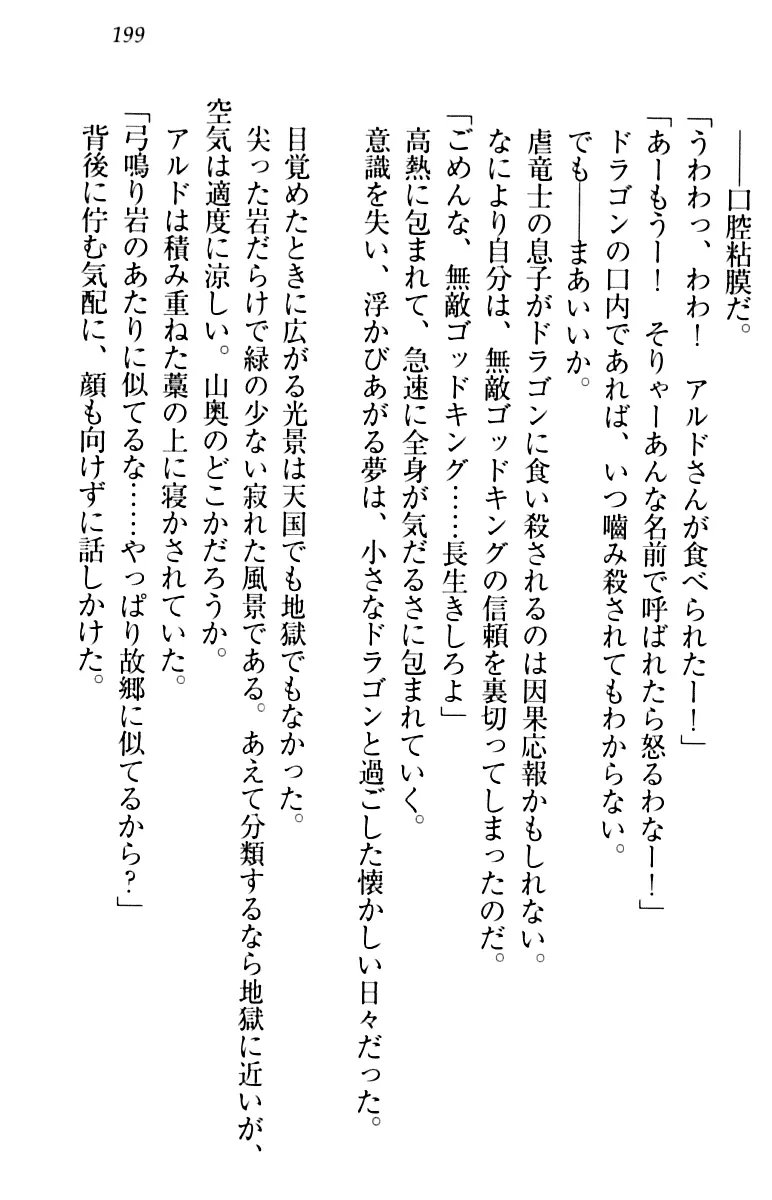 199
――口腔粘膜だ。
「うわわっ、わわ！　アルドさんが食べられたー！」
「あーもうー！　そりゃーあんな名前で呼ばれたら怒るわなー！」
ドラゴンの口内であれば、いつ嚙み殺されてもわからない。
でも――まあいいか。
虐竜士の息子がドラゴンに食い殺されるのは因果応報かもしれない。
なにより自分は、無敵ゴッドキングの信頼を裏切ってしまったのだ。
「ごめんな、無敵ゴッドキング……長生きしろよ」
高熱に包まれて、急速に全身が気だるさに包まれていく。
意識を失い、浮かびあがる夢は、小さなドラゴンと過ごした懐かしい日々だった。
目覚めたときに広がる光景は天国でも地獄でもなかった。
尖った岩だらけで緑の少ない寂れた風景である。あえて分類するなら地獄に近いが、
空気は適度に涼しい。山奥のどこかだろうか。
アルドは積み重ねた藁の上に寝かされていた。
「弓鳴り岩のあたりに似てるな……やっぱり故郷に似てるから？」
背後に佇む気配に、顔も向けずに話しかけた。